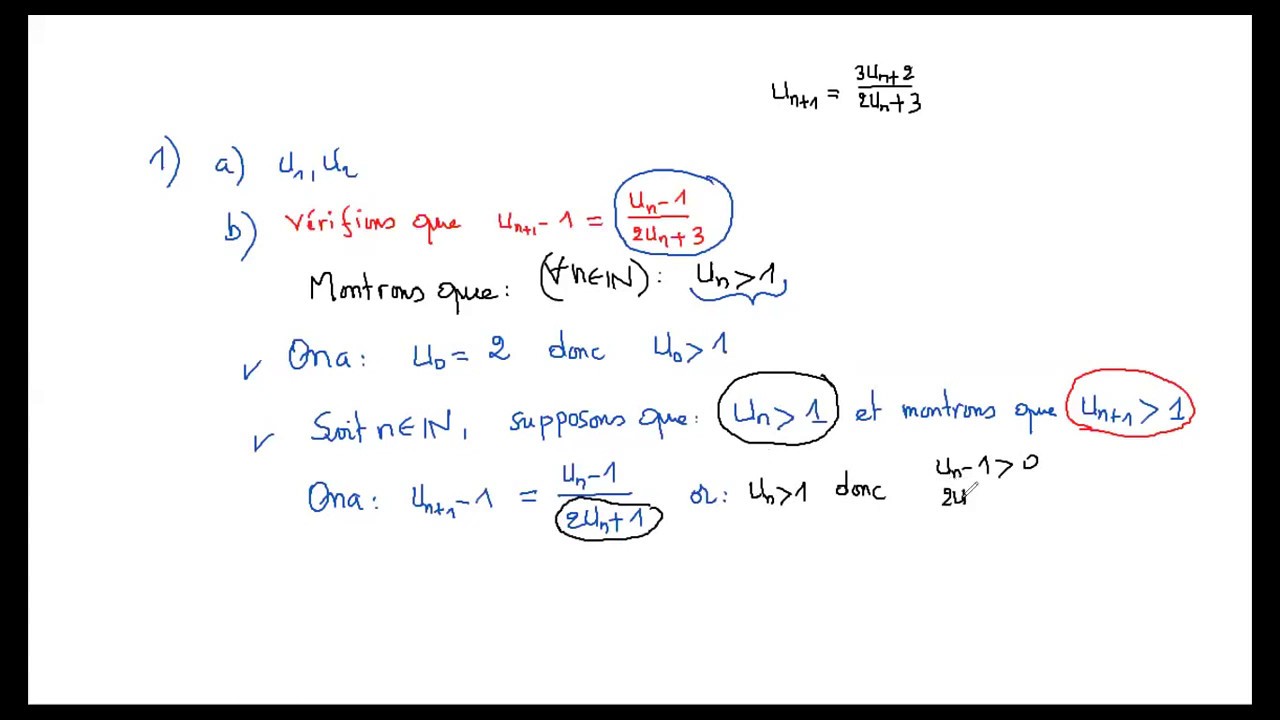 Uₙ₊₁ = (3Uₙ+2)/(2Uₙ+3)
1) a) U₁, U₂
b) vérifions que Uₙ₊₁-1 = (Uₙ-1)/(2Uₙ+3)
Montrons que: (∀n∈IN): Uₙ>1
✓ Ona: U₀=2 donc U₀>1
✓ Soit n∈IN, supposons que: Uₙ>1 et montrons que Uₙ₊₁>1
Ona: Uₙ₊₁-1 = (Uₙ-1)/(2Uₙ+1) or: Uₙ>1 donc Uₙ-1>0
2U